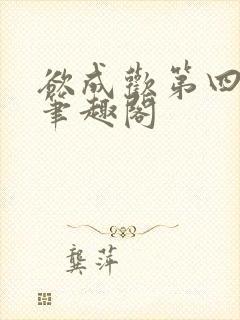 欲成欢第四
笔趣阁
龚萍